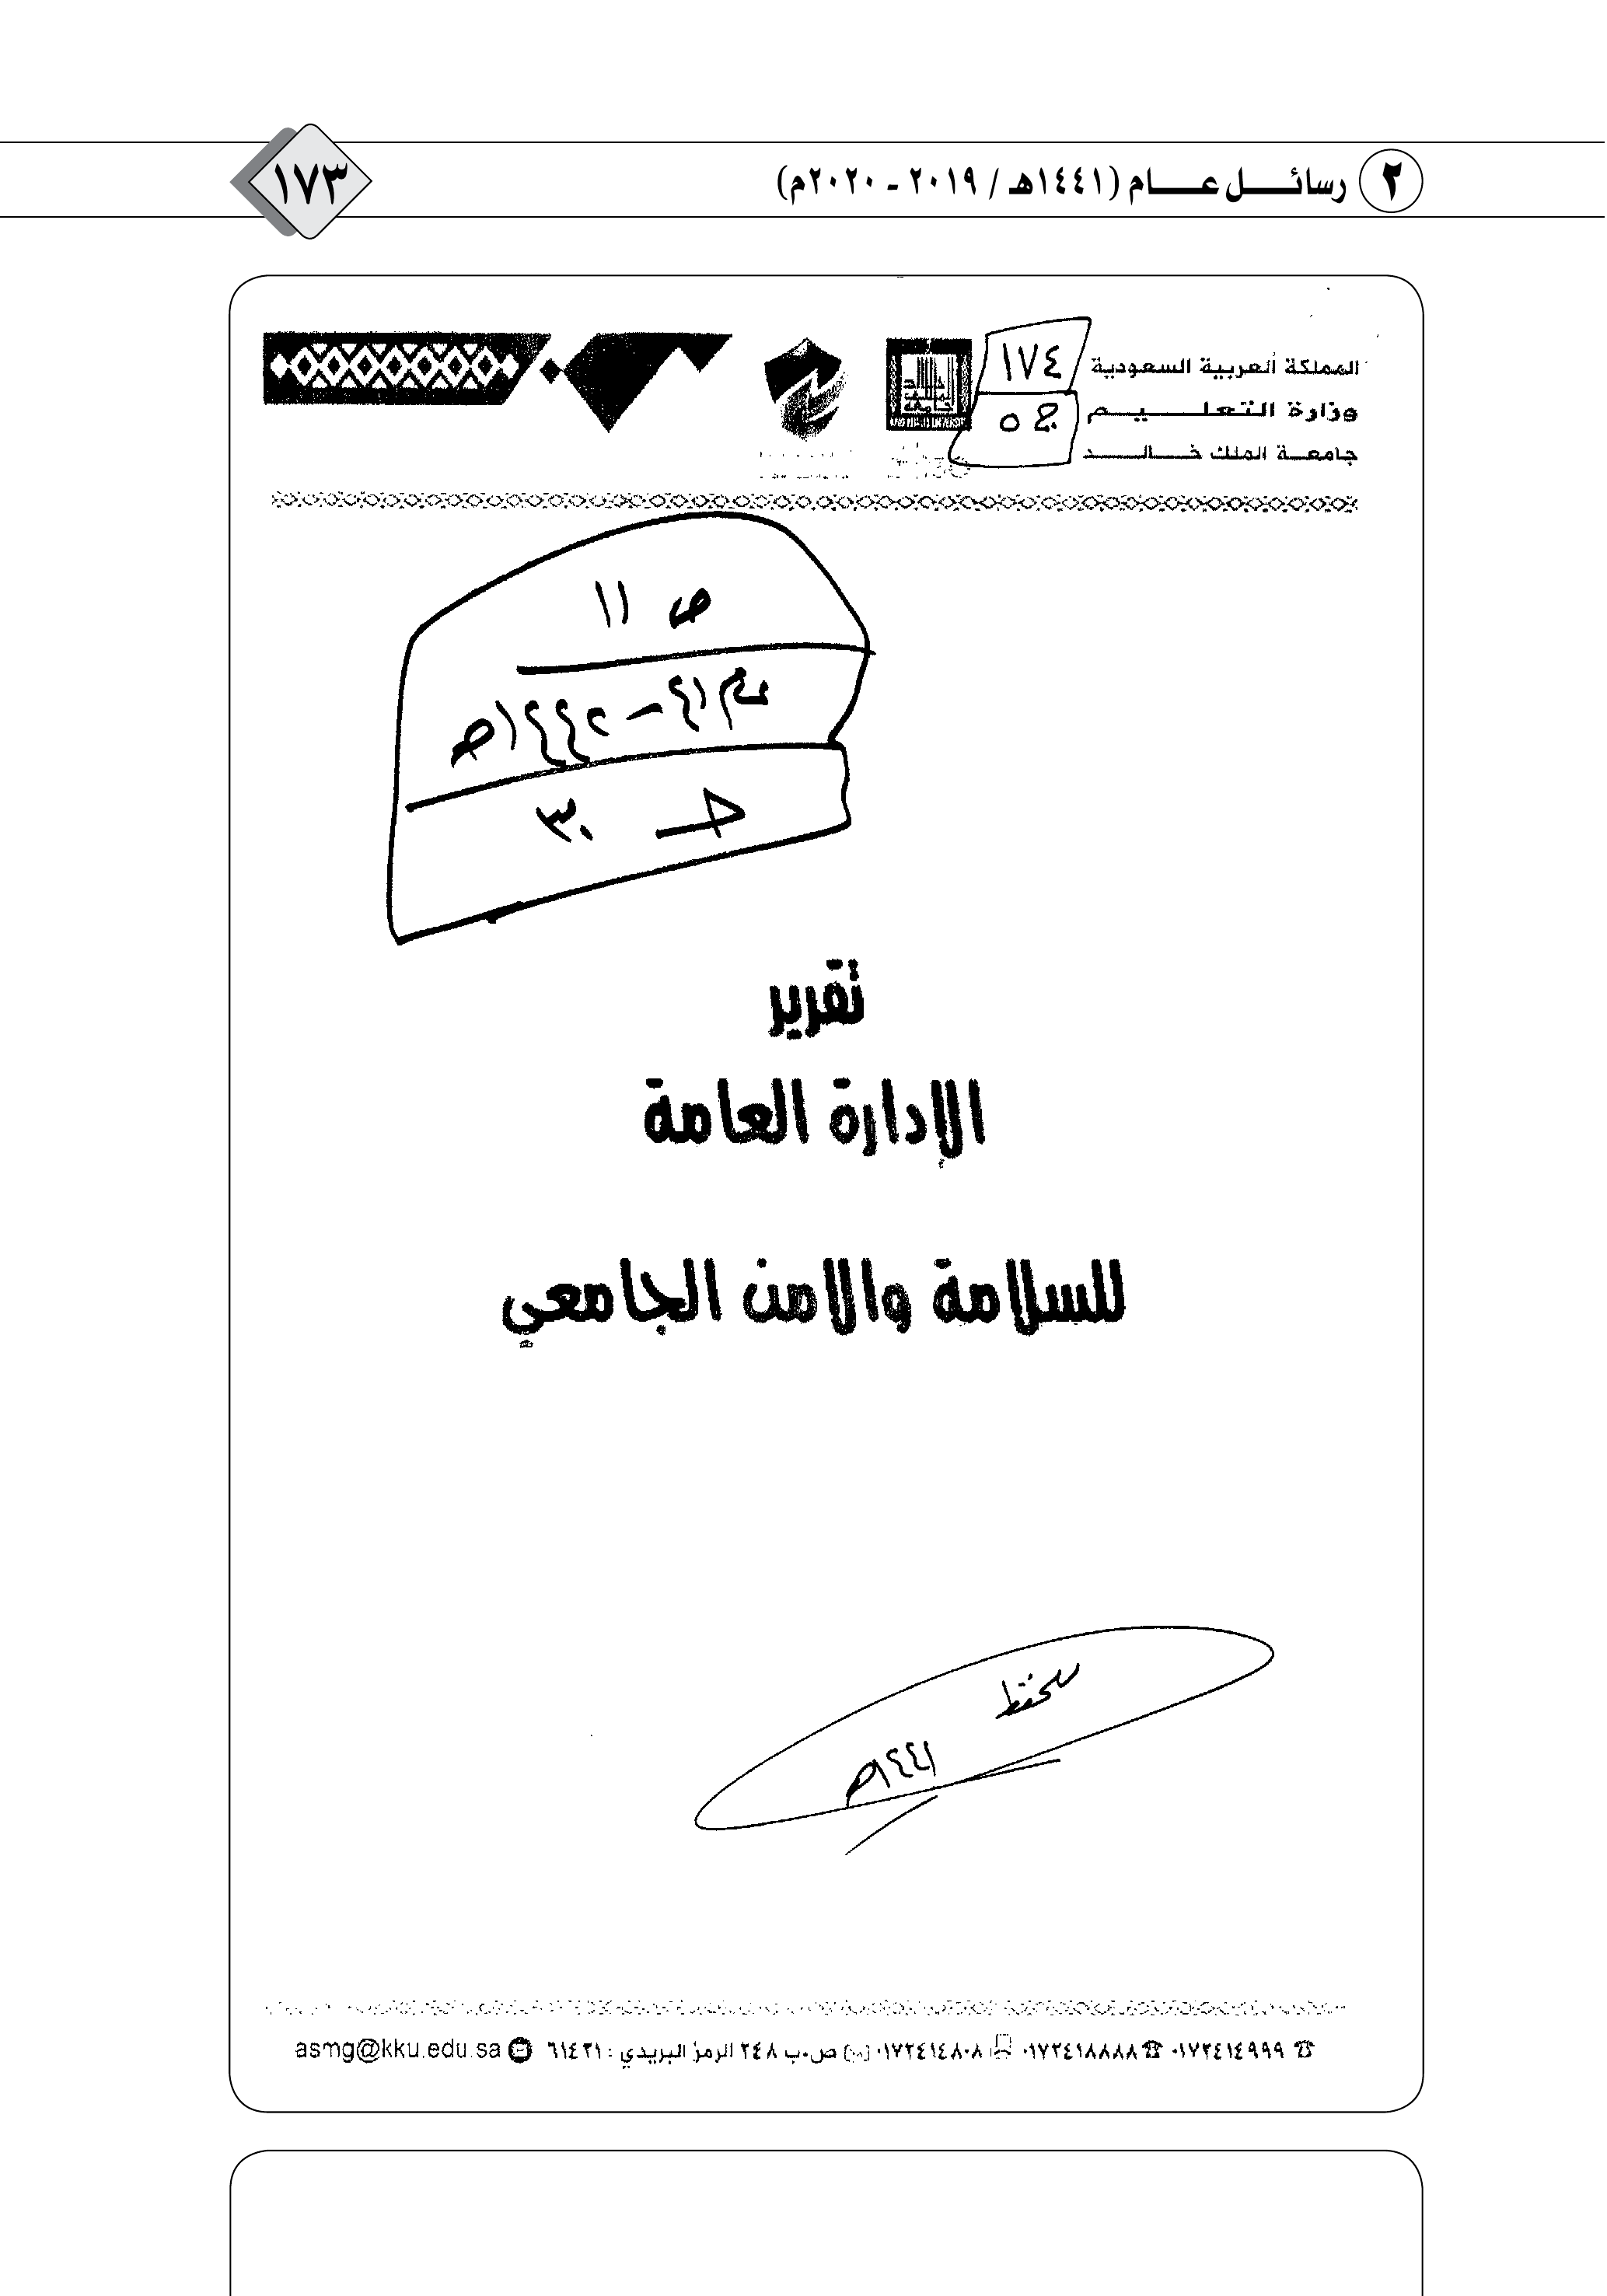 ٢ رسائـــل عـــام (١٤٤١هـ / ٢٠١٩ - ٢٠٢٠م)
١٧٣
المملكة العربية السعودية
وزارة التعلـــيـــم
جامعـة الملك خـالـــد
١٧٤
ص ١١
١٤٤٢هـ
٣٠
تقرير
الإدارة العامة
للسلامة والامن الجامعي
للحفظ
١٤٤١هـ
٠١٧٢٤١٤٩٩٩ ٠١٧٢٤١٨٨٨٨ ٠١٧٢٤١٤٨٠٨ ص.ب ٢٤٨ الرمز البريدي : ٦١٤٢١ asmg@kku.edu.sa